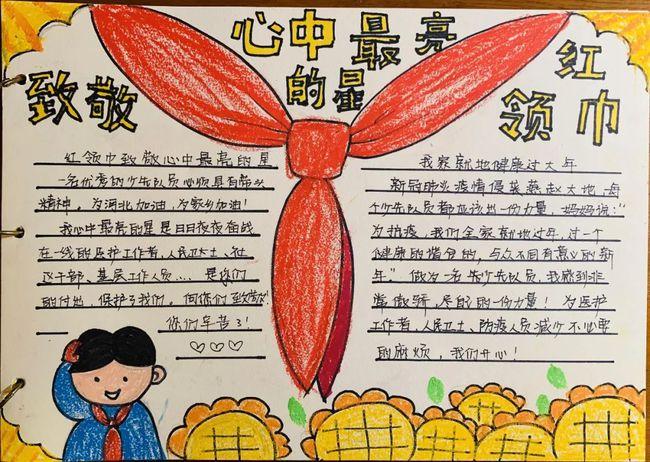 红领巾
致敬
心中最亮
的星
红领巾致敬心中最亮的星
一名优秀的少先队员必须具有带头
精神。为河北加油,为家乡加油!
我心中最亮的星是日日夜夜奋战
在一线的医护工作者,人民卫士、社
区干部、基层工作人员……是你们
的付出,保护了我们。向你们致敬!
你们辛苦了!
我家就地健康过大年
新冠肺炎疫情侵袭燕赵大地,每
个少先队员都应该出一份力量,妈妈说:“
为抗疫,我们全家就地过年,过一个
健康的节俭的,与众不同有意义的新
年”做为一名先队员,我感到非
常骄傲,尽自己的一份力量!为医护
工作者,人民卫士、防疫人员减少不必要
的麻烦,我们开心!